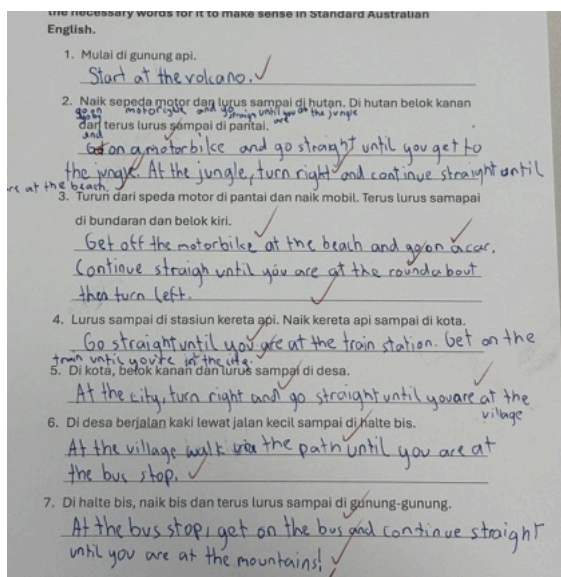 the necessary words for it to make sense in Standard Australian
English.
1. Mulai di gunung api.
Start at the volcano.
2. Naik sepeda motor dan lurus sampai di hutan. Di hutan belok kanan
go on motorbike and go straign until you are at the jungle
dan terus lurus sampai di pantai.
and
Go on a motorbike and go straight until you get to
the jungle. At the jungle, turn right and continue straight until
re at the beach.
3. Turun dari speda motor di pantai dan naik mobil. Terus lurus samapai
di bundaran dan belok kiri.
Get off the motorbike at the beach and go on a car.
Continue straigh until you are at the roundabout
then turn left.
4. Lurus sampai di stasiun kereta api. Naik kereta api sampai di kota.
Go straight until you are at the train station. Get on the
train until you're in the city.
5. Di kota, belok kanan dan lurus sampai di desa.
At the city, turn right and go straight until you are at the
village
6. Di desa berjalan kaki lewat jalan kecil sampai di halte bis.
At the village walk via the path until you are at
the bus stop.
7. Di halte bis, naik bis dan terus lurus sampai di gunung-gunung.
At the bus stop, get on the bus and continue straight
until you are at the mountains!